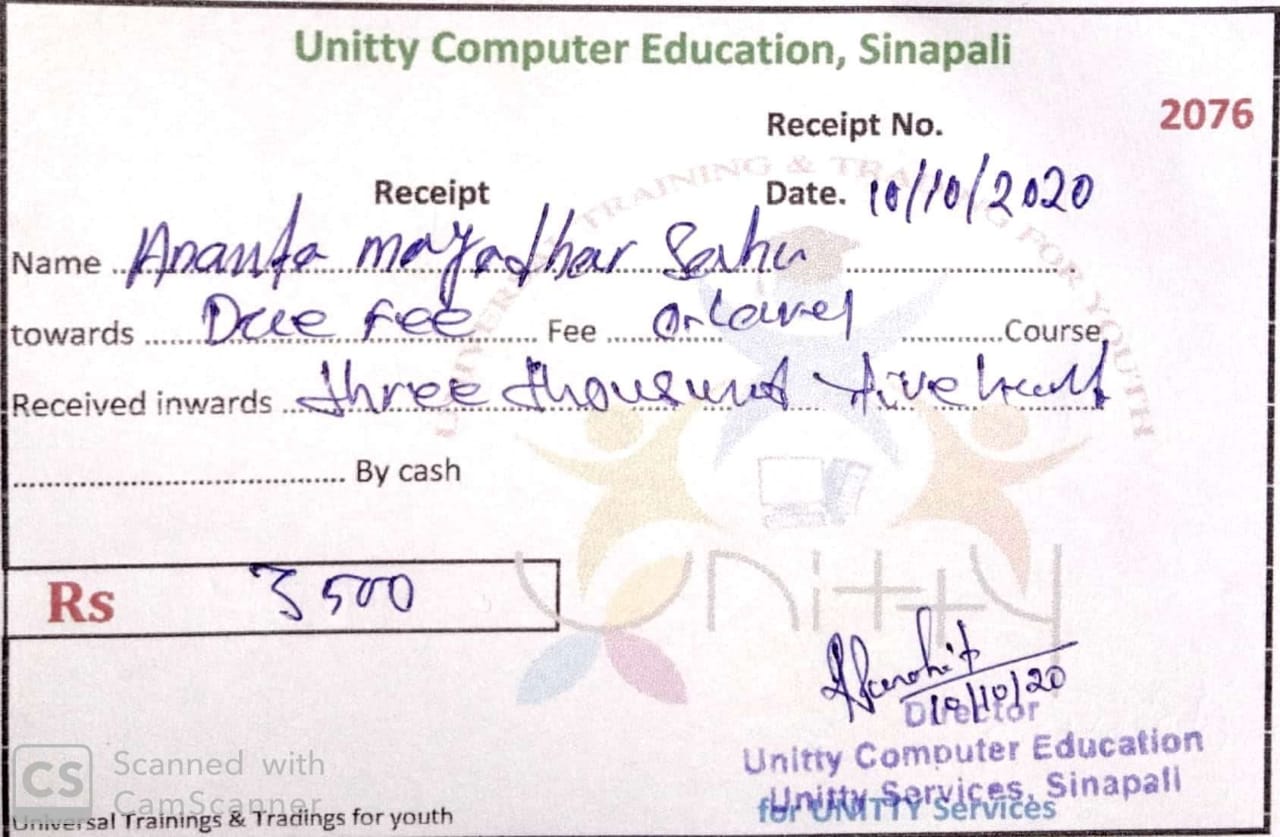 Unitty Computer Education, Sinapali
2076
Receipt No.
Receipt Date. 10/10/2020
Name Ananta mayadhar Sahu
towards Due fee Fee O-Level Course
Received inwards three thousand five
By cash
Rs 3500
10/10/20
Director
Unitty Computer Education
Unitty Services, Sinapali
for UNITTY Services
Universal Trainings & Tradings for youth
CS Scanned with
CamScanner
UNIVERSAL TRAINING & TRADING FOR YOUTH
Unitty